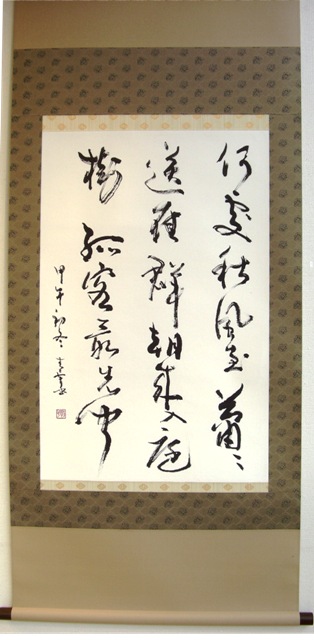 何處秋風至蕭〻
送雁群朝来入庭
樹 孤客最先聞
甲午初冬